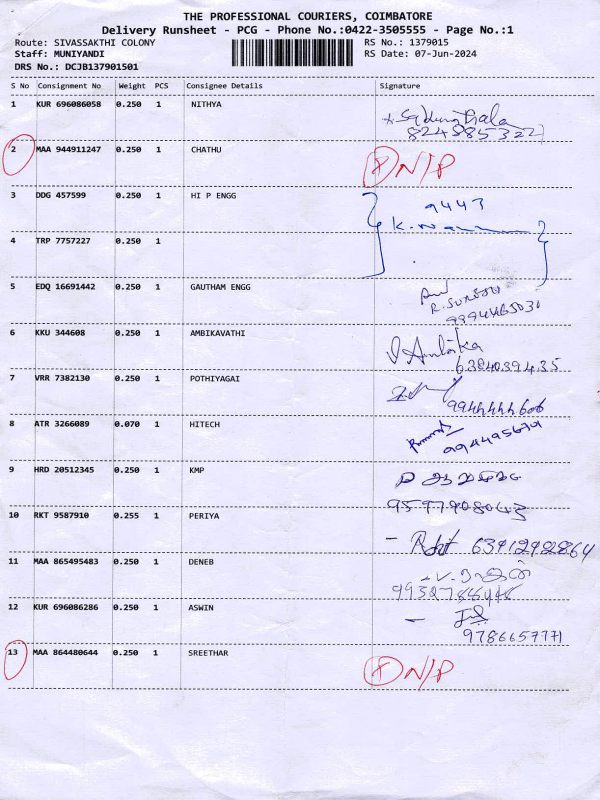 THE PROFESSIONAL COURIERS, COIMBATORE
Delivery Runsheet - PCG - Phone No.:0422-3505555 - Page No.:1
Route: SIVASSAKTHI COLONY RS No.: 1379015
Staff: MUNIYANDI RS Date: 07-Jun-2024
DRS No.: DCJB137901501
S No Consignment No Weight PCS Consignee Details Signature
1 KUR 696086058 0.250 1 NITHYA
8248853227
2 MAA 944911247 0.250 1 CHATHU N/P
3 DDG 457599 0.250 1 HI P ENGG 9443
4 TRP 7757227 0.250 1
5 EDQ 16691442 0.250 1 GAUTHAM ENGG
6 KKU 344608 0.250 1 AMBIKAVATHI Ambika
6384039435
7 VRR 7382130 0.250 1 POTHIYAGAI
8 ATR 3266089 0.070 1 HITECH
9 HRD 20512345 0.250 1 KMP
9597908043
10 RKT 9587910 0.255 1 PERIYA
11 MAA 865495483 0.250 1 DENEB
12 KUR 696086286 0.250 1 ASWIN
9786657771
13 MAA 864480644 0.250 1 SREETHAR N/P